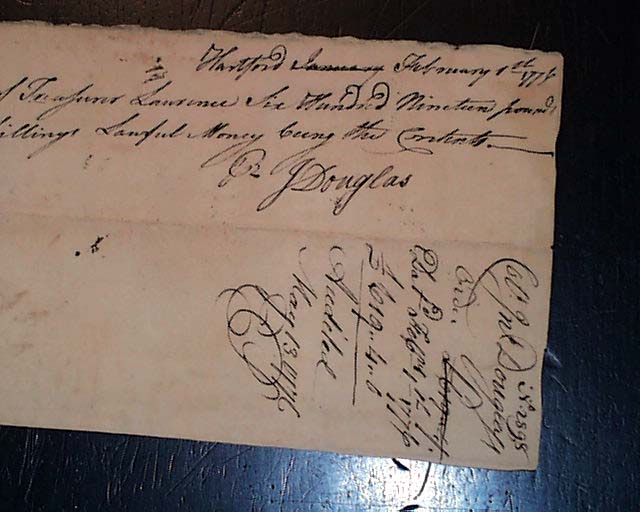 Hartford January February 1st 1776
of Treasurer Laurence Six Hundred Nineteen pounds
illings Lawful Money being the Contents
Pr J Douglas
No 2898
Col. Jno Douglas's
Order
Dat'd Feby 1st 1776
£619
Audited
May 13 1776